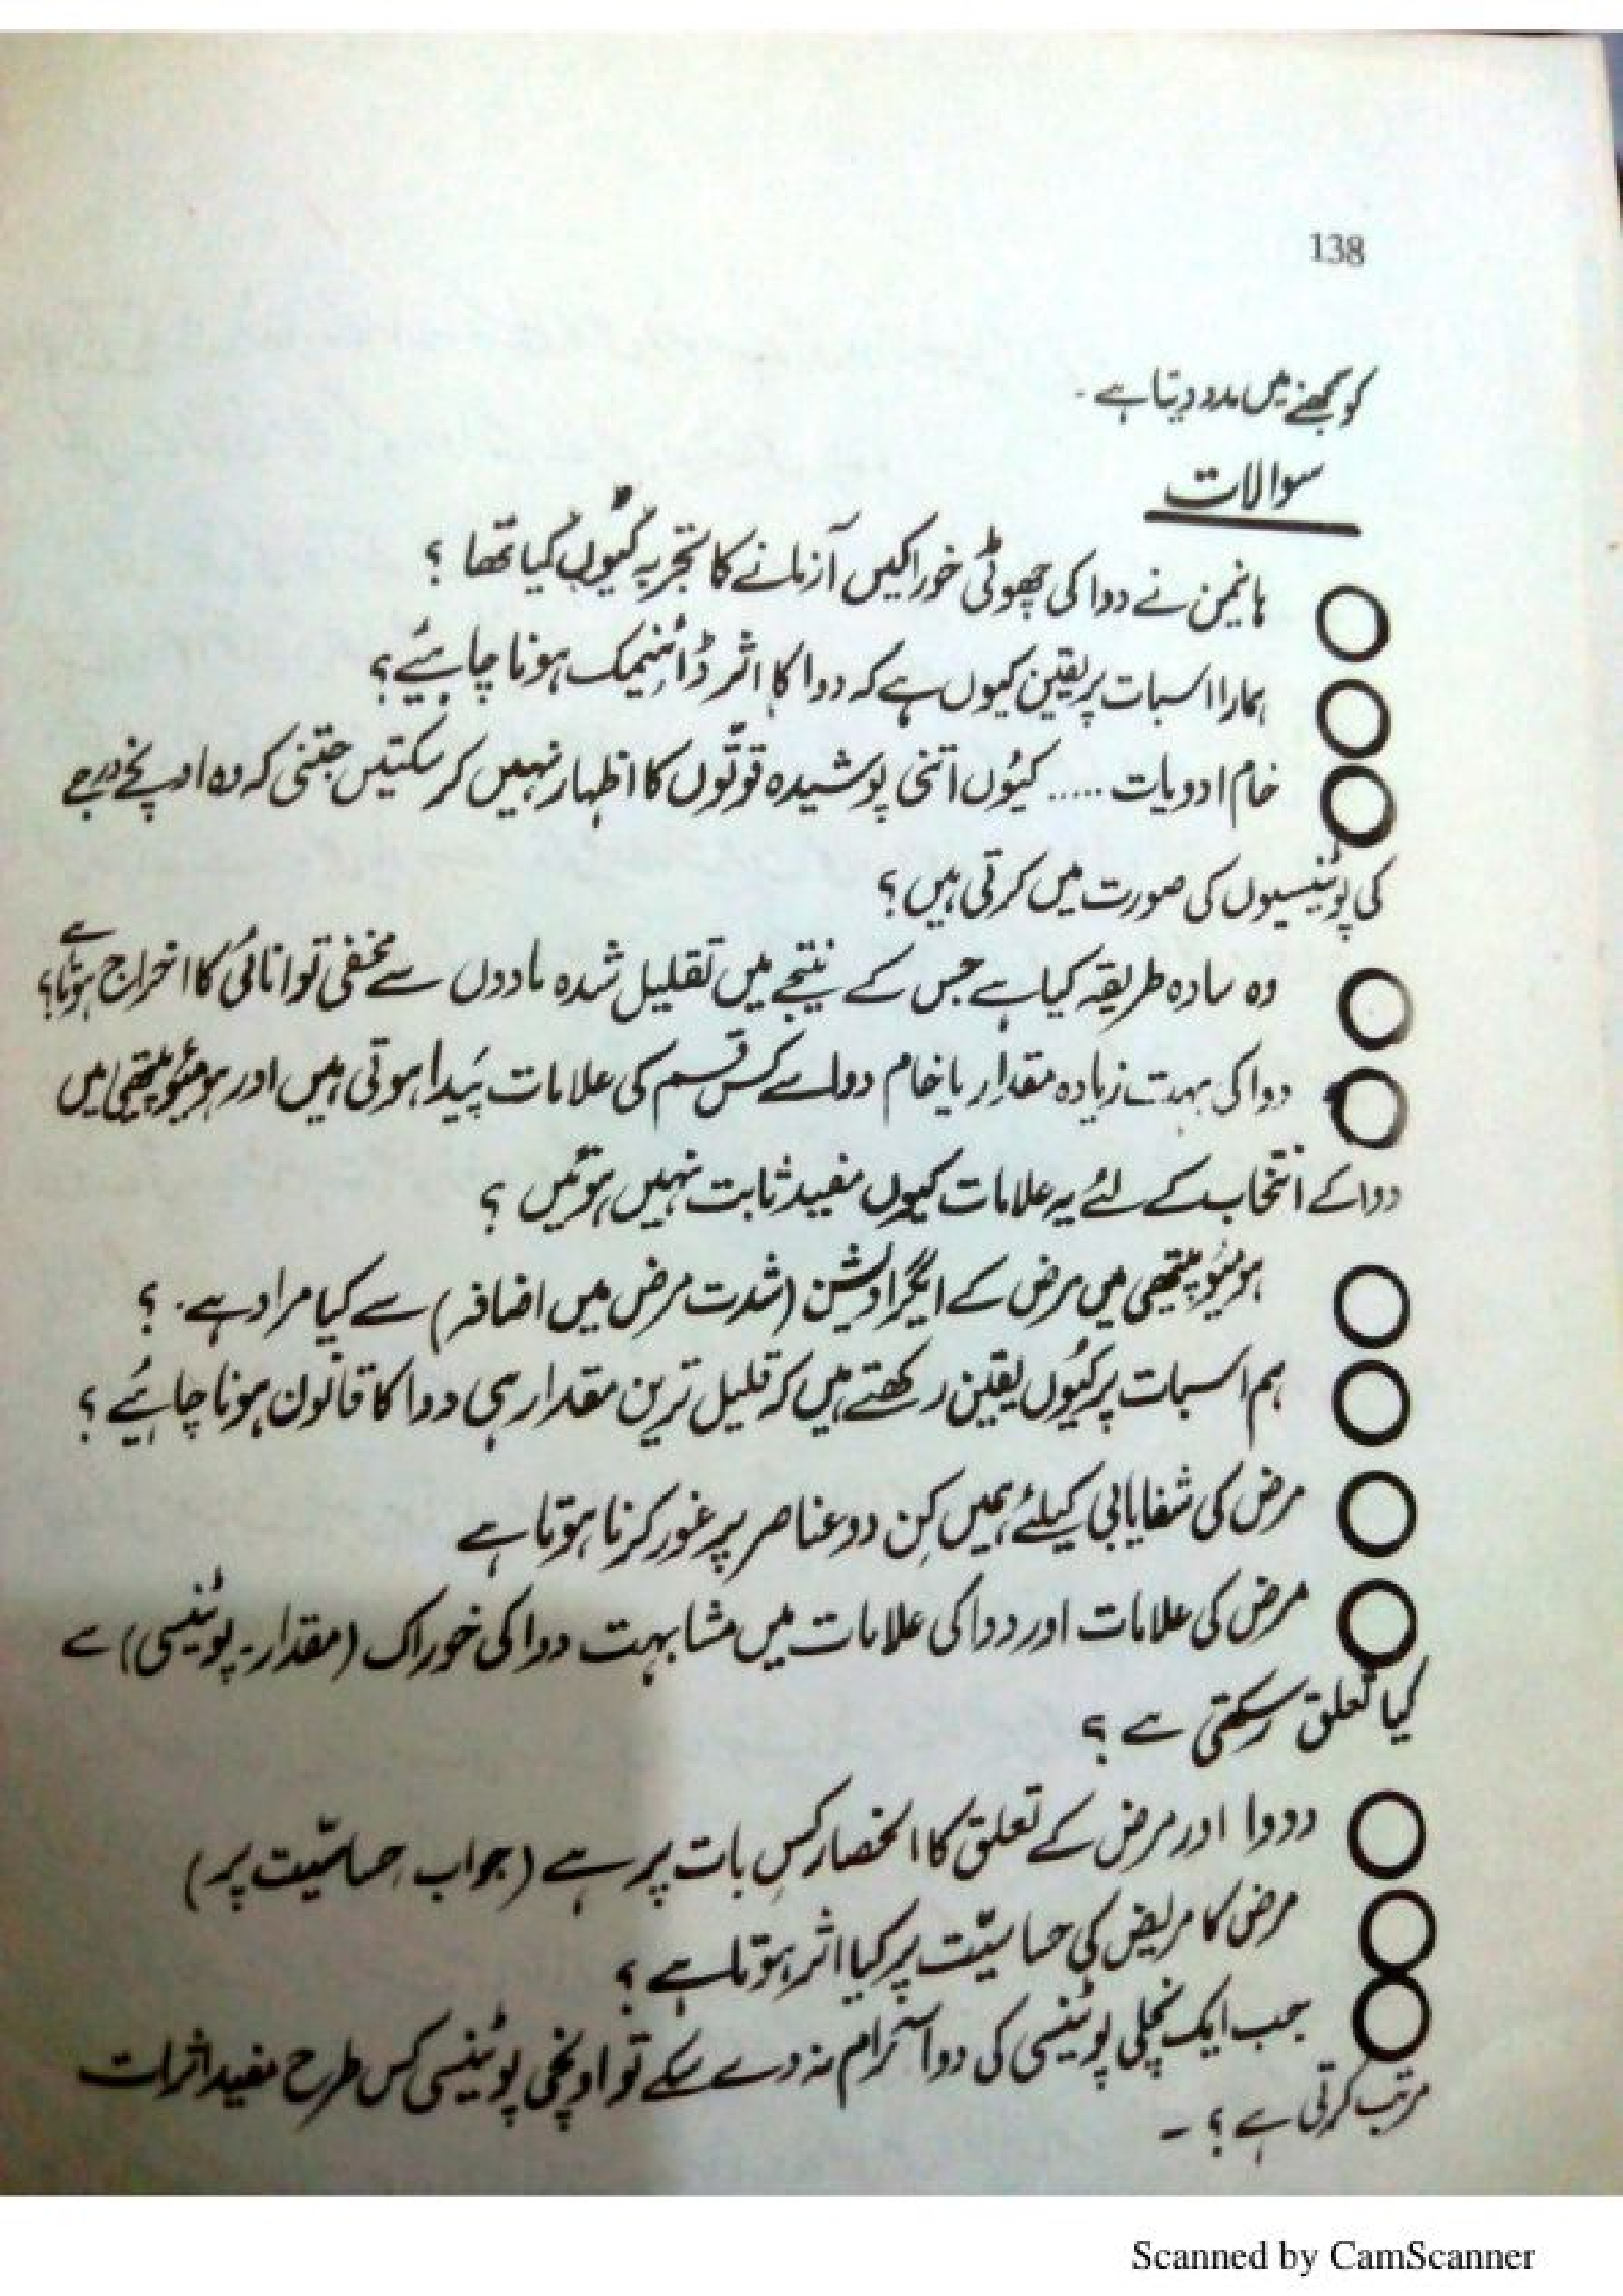 138
کو سمجھنے میں مدد دیتا ہے -
سوالات
ہانیمن نے دوا کی چھوٹی خوراکیں آزمانے کا تجربہ کیوں کیا تھا ؟
ہمارا اسبات پر یقین کیوں ہے کہ دوا کا اثر ڈائنیمک ہونا چاہیئے ؟
خام ادویات ..... کیوں اتنی پوشیدہ قوتوں کا اظہار نہیں کر سکتیں جتنی کہ وہ اونچے درجے
کی پوٹینسیوں کی صورت میں کرتی ہیں ؟
وہ سادہ طریقہ کیا ہے جس کے نتیجے میں تقلیل شدہ مادوں سے مخفی توانائی کا اخراج ہوتا ہے ؟
دوا کی بہت زیادہ مقدار یا خام دوا سے کس قسم کی علامات پیدا ہوتی ہیں اور ہومیوپیتھی میں
دوا کے انتخاب کے لئے یہ علامات کیوں مفید ثابت نہیں ہوتیں ؟
ہومیوپیتھی میں مرض کے ایگراویشن (شدت مرض میں اضافہ) سے کیا مراد ہے . ؟
ہم اسبات پر کیوں یقین رکھتے ہیں کہ قلیل ترین مقدار ہی دوا کا قانون ہونا چاہئیے ؟
مرض کی شفایابی کیلئے ہمیں کِن دو عناصر پر غور کرنا ہوتا ہے
مرض کی علامات اور دوا کی علامات میں مشابہت دوا کی خوراک (مقدار - پوٹینسی) سے
کیا تعلق رکھتی ہے ؟
دووا اور مرض کے تعلق کا انحصار کسِ بات پر ہے (جواب حساسیّت پر)
مرض کا مریض کی حساسیّت پر کیا اثر ہوتا ہے ؟
جب ایک نچلی پوٹینسی کی دوا آرام نہ دے سکے تو اونچی پوٹینسی کس طرح مفید اثرات
مرتب کرتی ہے ؟ -
Scanned by CamScanner